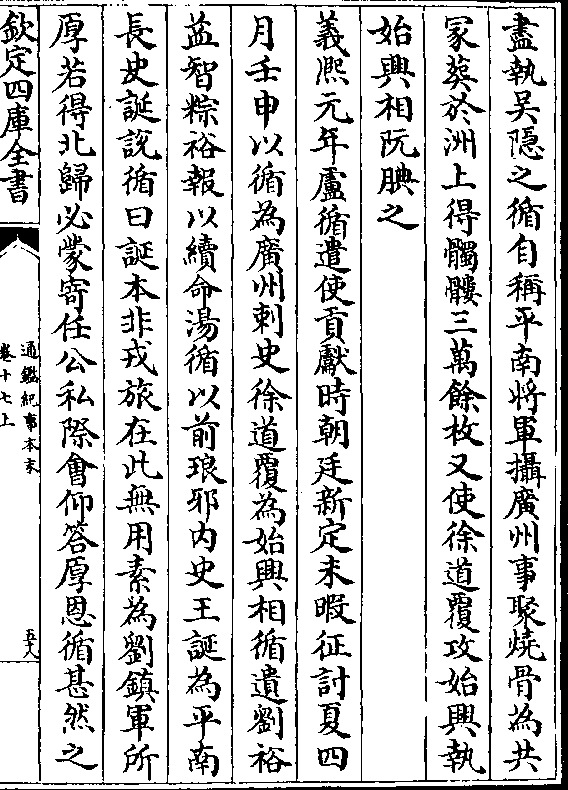 盡執吳隱之循自稱平南將軍攝廣州事聚燒骨為共
冢葬於洲上得髑髏三萬餘枚又使徐道覆攻始興執
始興相阮腆之
義熙元年盧循遣使貢獻時朝廷新定未暇征討夏四
月壬申以循為廣州刺史徐道覆為始興相循遺劉裕
益智粽裕報以續命湯循以前琅邪内史王誕為平南
長史誕説循曰誕本非戎旅在此無用素為劉鎮軍所
厚若得北歸必蒙寄任公私際會仰答厚恩循甚然之
欽定四庫全書
通鑑紀事本末
卷十七上
五八